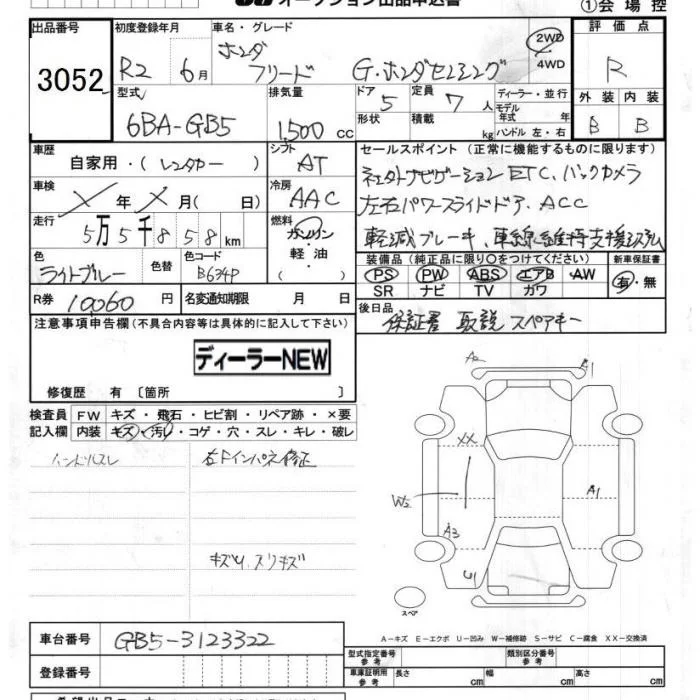 オークション出品申込書
①会場控
出品番号
3052
初度登録年月
R2 6月
車名・グレード
ホンダ
フリード G・ホンダセンシング
2WD
4WD
評価点
R
型式
6BA-GB5
排気量
1,500 cc
ドア
5
定員
7 人
形状
積載
kg
ディーラー・並行
モデル
年式 年
ハンドル 左・右
外装 内装
B B
車歴
自家用・(レンタカー)
シフト
AT
車検
X年X月( 日)
冷房
AAC
走行
5万5千858km
燃料
ガソリン
・
軽油
・
( )
色
ライトブルー
色替
色コード
B634P
R券
10060円
名変通知期限 月 日
セールスポイント (正常に機能するものに限ります)
ETC、バックカメラ
左右パワースライドドア、ACC
軽減ブレーキ、車線維持支援システム
装備品 (純正品に限り〇をつけてください)
PS PW ABS エアB AW
SR ナビ TV ガワ
新車保証書
有・無
後日品
保証書 取説 スペアキー
注意事項申告欄(不具合内容等は具体的に記入して下さい)
ディーラーNEW
修復歴 有 〔箇所 〕
検査員
記入欄
FW キズ・飛石・ヒビ割・リペア跡・×要
内装 キズ・汚レ・コゲ・穴・スレ・キレ・破レ
ハンドルスレ
右Fインパネ修正
キズU、スリキズ
A2
A1
XX
W2
A1
A3
U1
スペア
A-キズ E-エクボ U-凹み W-補修跡 S-サビ C-腐食 XX-交換済
車台番号
GB5-3123322
登録番号
型式指定番号
参考
類別区分番号
参考
車庫証明用
参考
長さ cm
幅 cm
高さ cm